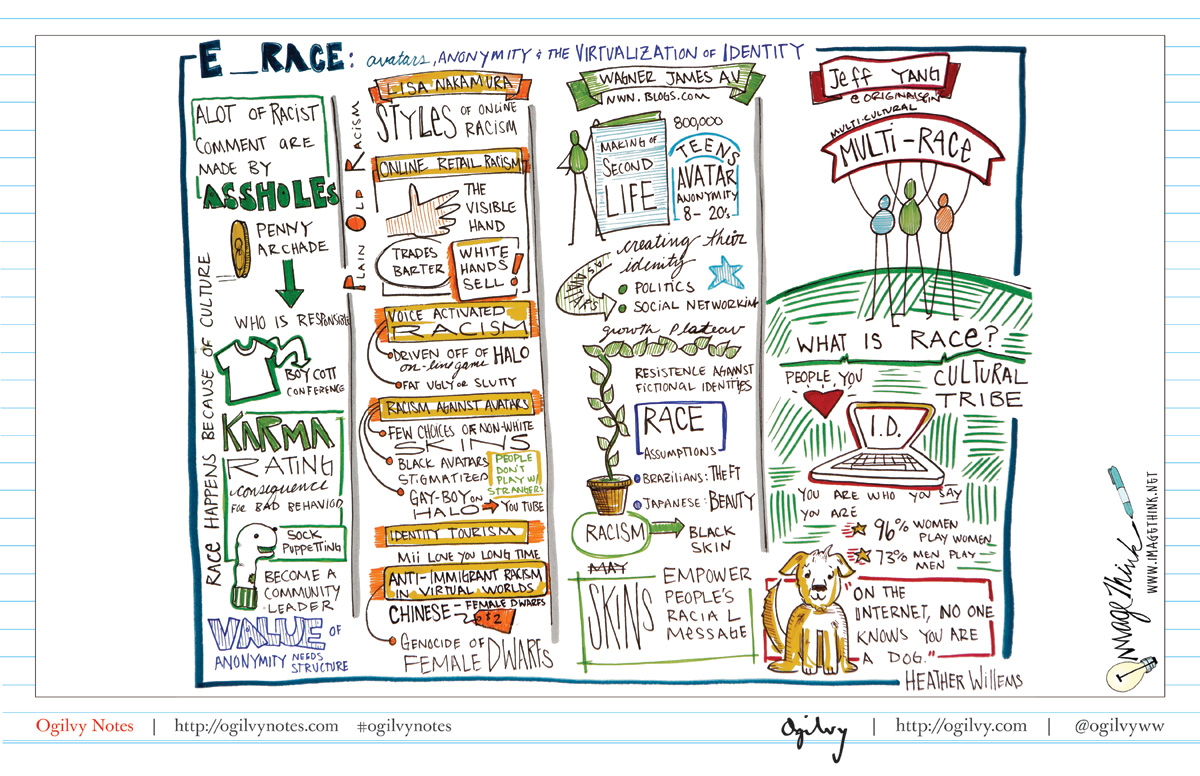 E_RACE: avatars, ANONYMITY & THE VIRTUALIZATION OF IDENTITY
ALOT OF RACIST
COMMENT ARE
MADE BY
ASSHOLES
PENNY
ARCHADE
WHO IS RESPONSIBLE
BOYCOTT
CONFERENCE
KARMA
RATING
consequence
FOR BAD BEHAVIOR
SOCK
PUPPETTING
BECOME A
COMMUNITY
LEADER
VALUE OF
ANONYMITY NEEDS
STRUCTURE
RACE HAPPENS BECAUSE OF CULTURE
PLAIN OLD RACISM
LISA NAKAMURA
STYLES OF ONLINE
RACISM
ONLINE RETAIL RACISM
THE
VISIBLE
HAND
TRADES
BARTER
WHITE
HANDS
SELL!
VOICE ACTIVATED
RACISM
DRIVEN OFF OF HALO
on-line game
FAT UGLY OR SLUTTY
RACISM AGAINST AVATARS
FEW CHOICES OF NON-WHITE
SKINS
BLACK AVATARS
STIGMATIZED
PEOPLE
DON'T
PLAY W/
STRANGERS
GAY-BOY ON
HALO → YOU TUBE
IDENTITY TOURISM
Mii LOVE YOU LONG TIME
ANTI-IMMIGRANT RACISM
IN VIRTUAL WORLDS
CHINESE = FEMALE DWARFS
$2
GENOCIDE OF
FEMALE DWARFS
WAGNER JAMES AU
NWN.BLOGS.COM
MAKING OF
SECOND
LIFE
800,000
TEENS
AVATAR
ANONYMITY
8-20's
creating their
identity
POLITICS
SOCIAL NETWORKING
growth plateau
RESISTENCE AGAINST
FICTIONAL IDENTITIES
RACE
ASSUMPTIONS
BRAZILIANS: THEFT
JAPANESE: BEAUTY
RACISM → BLACK
SKIN
MAY
SKINS
EMPOWER
PEOPLE'S
RACIAL
MESSAGE
Jeff YANG
@ORIGINALSPIN
MULTI-CULTURAL
MULTI-RACE
WHAT IS RACE?
PEOPLE, YOU
CULTURAL
TRIBE
I.D.
YOU ARE WHO YOU SAY
YOU ARE
96% WOMEN
PLAY WOMEN
73% MEN PLAY
MEN
"ON THE
INTERNET, NO ONE
KNOWS YOU ARE
A DOG."
HEATHER WILLEMS
ImageThink
WWW.IMAGETHINK.NET
Ogilvy Notes | http://ogilvynotes.com #ogilvynotes
Ogilvy | http://ogilvy.com | @ogilvyww